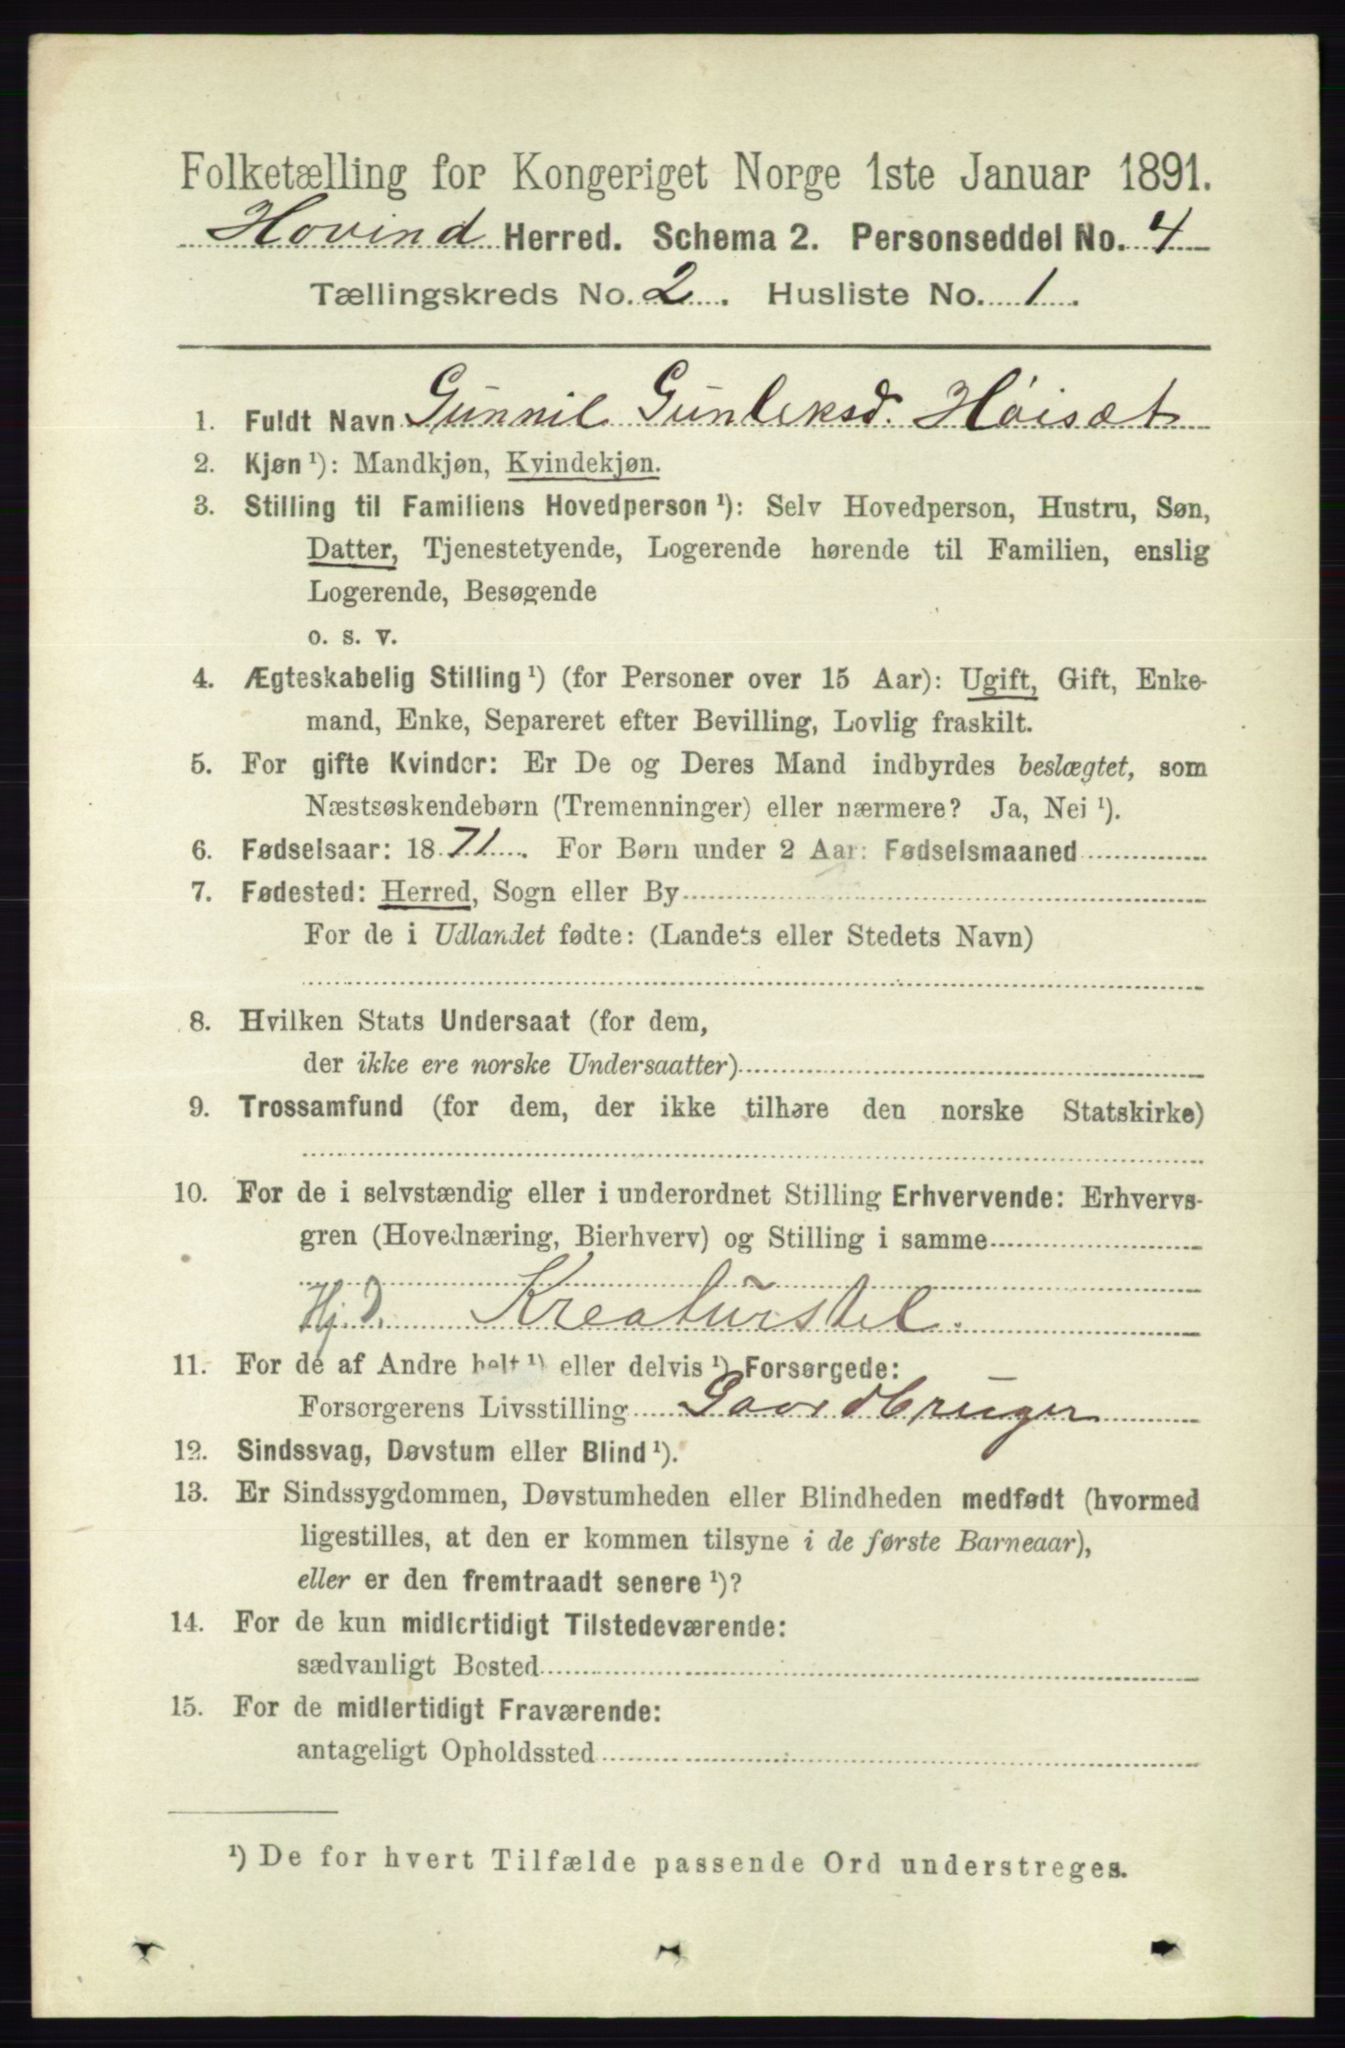 Folketælling for Kongeriget Norge 1ste Januar 1891.
Hovind Herred. Schema 2. Personseddel No. 4
Tællingskreds No. 2. Husliste No. 1.
1. Fuldt Navn Gunnil Gunleksd. Höisæt
2. Kjøn¹): Mandkjøn, Kvindekjøn.
3. Stilling til Familiens Hovedperson¹): Selv Hovedperson, Hustru, Søn,
Datter, Tjenestetyende, Logerende hørende til Familien, enslig
Logerende, Besøgende
o. s. v.
4. Ægteskabelig Stilling¹) (for Personer over 15 Aar): Ugift, Gift, Enke-
mand, Enke, Separeret efter Bevilling, Lovlig fraskilt.
5. For gifte Kvinder: Er De og Deres Mand indbyrdes beslægtet, som
Næstsøskendebørn (Tremenninger) eller nærmere? Ja, Nei¹).
6. Fødselsaar: 1871. For Børn under 2 Aar: Fødselsmaaned
7. Fødested: Herred, Sogn eller By
For de i Udlandet fødte: (Landets eller Stedets Navn)
8. Hvilken Stats Undersaat (for dem,
der ikke ere norske Undersaatter)
9. Trossamfund (for dem, der ikke tilhøre den norske Statskirke)
10. For de i selvstændig eller i underordnet Stilling Erhvervende: Erhvervs-
gren (Hovednæring, Bierhverv) og Stilling i samme
Hj. D. Kreaturstel.
11. For de af Andre helt¹) eller delvis¹) Forsørgede:
Forsørgerens Livsstilling Gaardbruger
12. Sindssvag, Døvstum eller Blind¹).
13. Er Sindssygdommen, Døvstumheden eller Blindheden medfødt (hvormed
ligestilles, at den er kommen tilsyne i de første Barneaar),
eller er den fremtraadt senere¹)?
14. For de kun midlertidigt Tilstedeværende:
sædvanligt Bosted
15. For de midlertidigt Fraværende:
antageligt Opholdssted
¹) De for hvert Tilfælde passende Ord understreges.